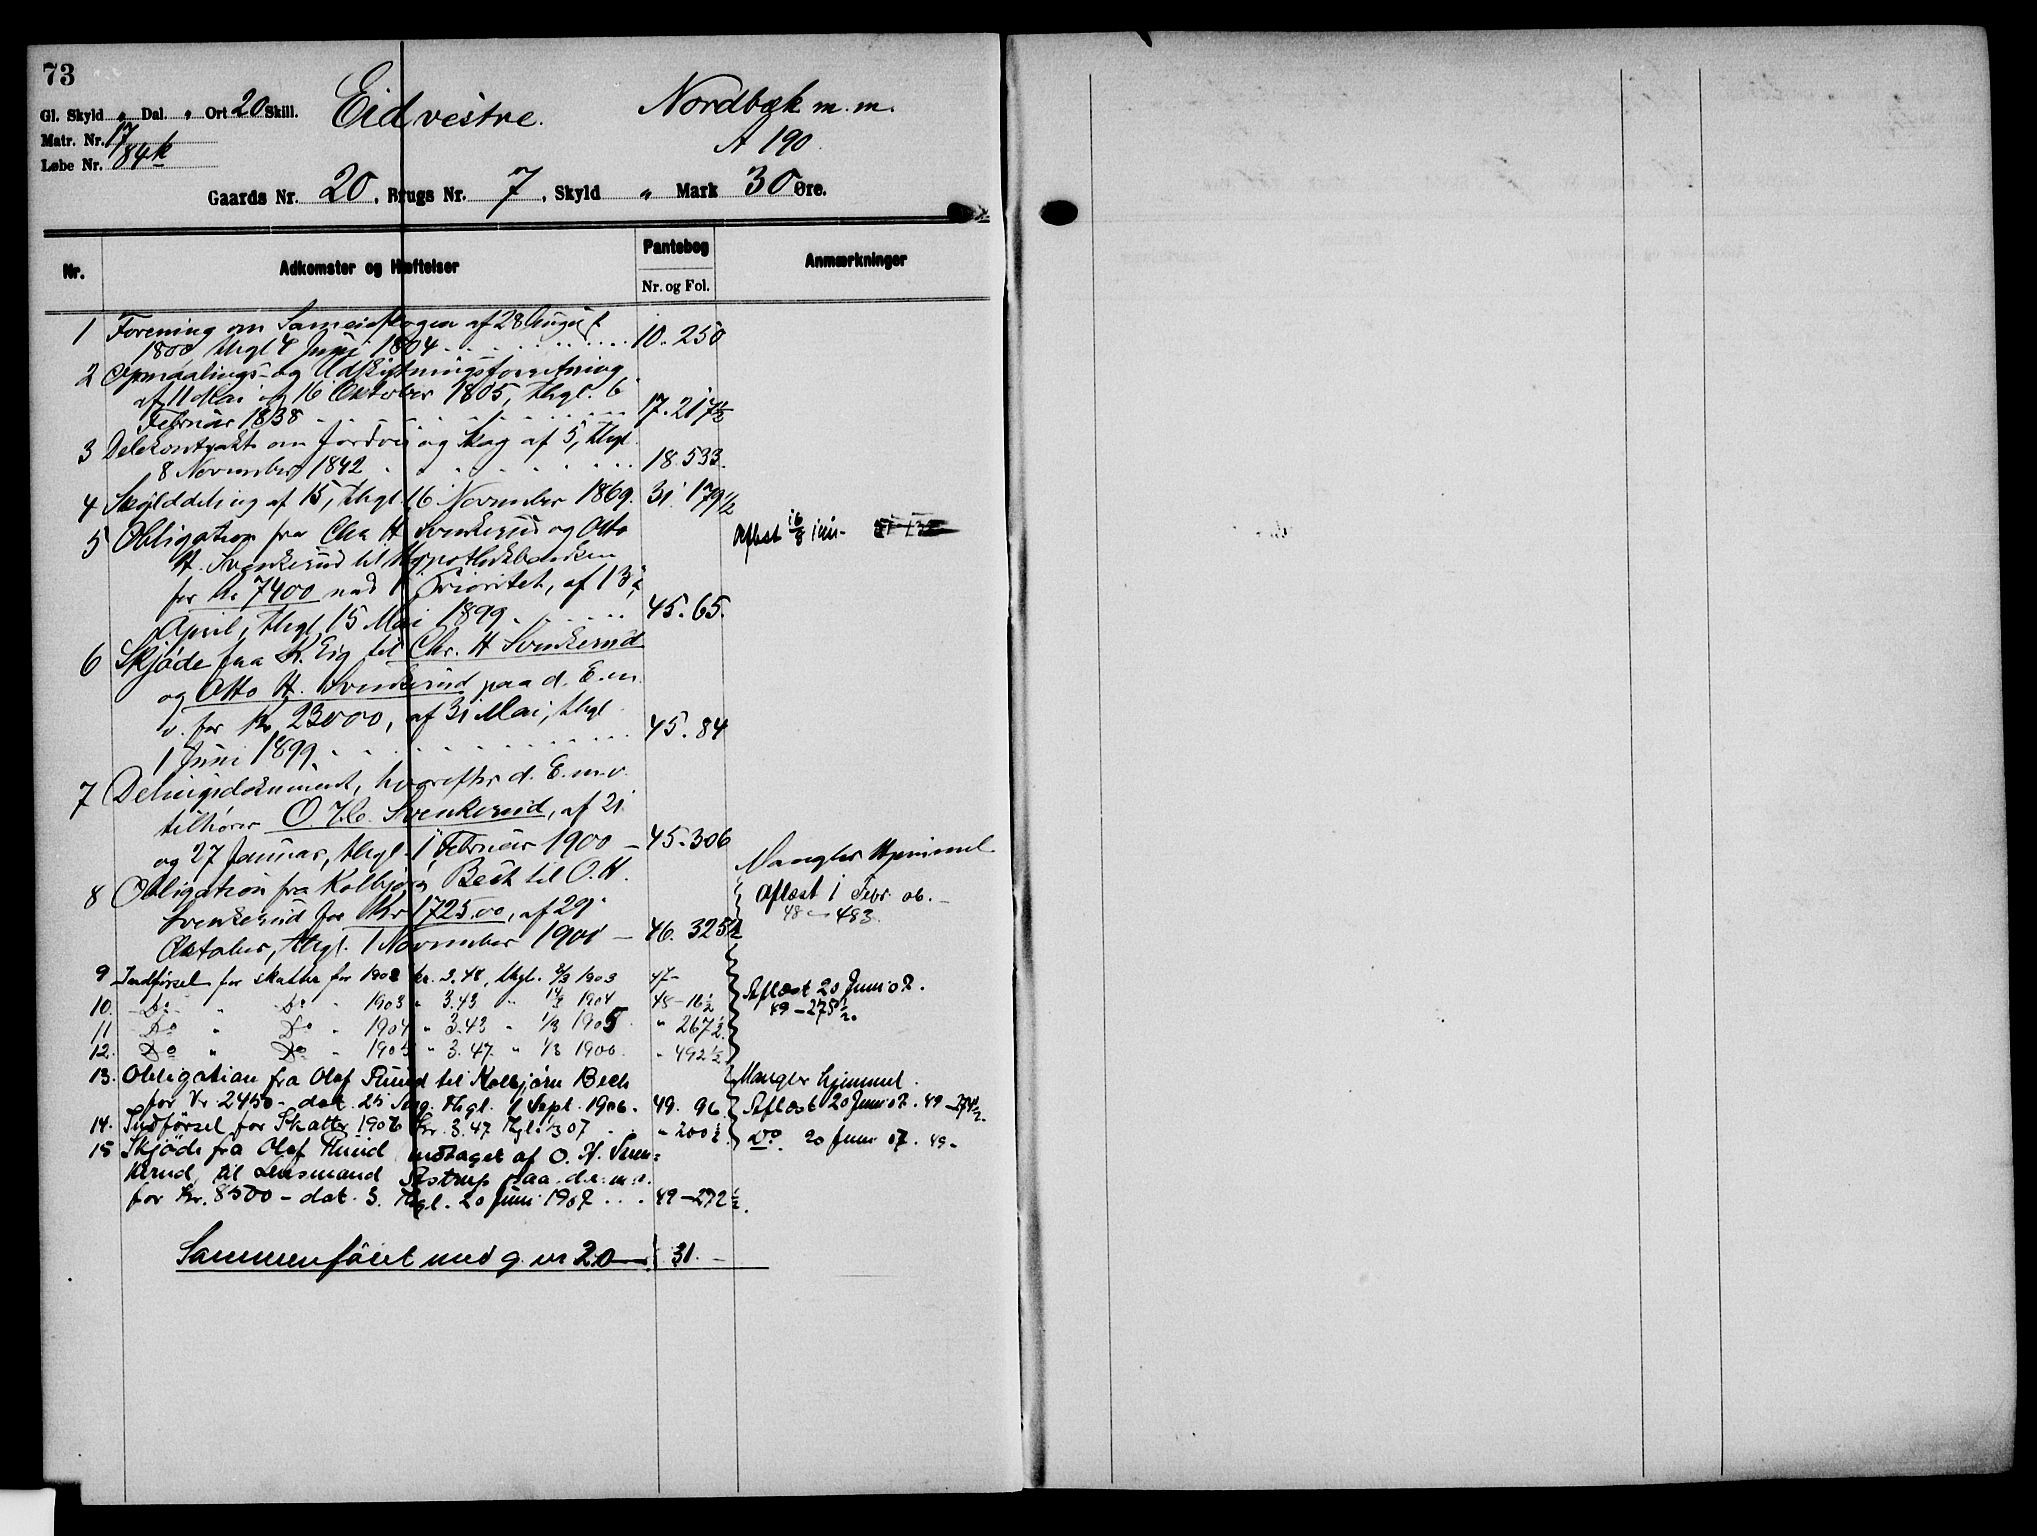 73
Gl. Skyld " Dal. " Ort 20 Skill.
Matr. Nr. 17
Løbe Nr. 84k
Eid vestre.
Nordbæk m. m.
A 190.
Gaards Nr. 20, Brugs Nr. 7, Skyld " Mark 30 Øre.
Nr. Adkomster og Hæftelser Pantebog Nr. og Fol. Anmærkninger
1 Forening om Sameieskogen af 28 August
1800 thgl 4 Juni 1804 10. 250
2 Opmaalings- og Udskiftningsforretning
af 11 Mai og 16 Oktober 1805, thgl. 6
Februar 1838 17. 217½
3 Delekontrakt om Jordvei og Skog af 5, thgl.
8 November 1842 18. 533.
4 Skylddeling af 15, thgl 16 November 1869. 31. 179½
5 Obligation fra Chr. H Svenkerud og Otto Aflæst 16/8
H. Svenkerud til Hypothekbanken
for Kr 7400 med 1 Prioritet, af 13
April, thgl 15 Mai 1899. 45. 65.
6 Skjøde fra K. Eig til Chr. H Svenkerud
og Otto H. Svenkerud paa d. E. m.
v. for Kr. 23000, af 31 Mai, thgl
1 Juni 1899. 45. 84
7 Delingsdokument, hvorefter d. E. m. v.
tilhører O. H. Svenkerud, af 21
og 27 Januar, thgl. 1 Februar 1900 45. 306
Mangler Hjemmel
8 Obligation fra Kolbjørn Bech til O. H. Aflæst 1 Febr 06.
Svenkerud for Kr 1725.00, af 29 48 - 483.
Oktober, thgl. 1 November 1901 46. 325½
9 Indførsel for skatter for 1902 kr. 3.48, thgl. 2/3 1903 47-
Aflæst 20 Juni 07.
10. Do " Do " 1903 " 3.43 " 14/3 1904 48 - 16½ 49 - 275½.
11 Do " Do " 1904 " 3.43 " 1/3 1905 " 267½.
12. Do " Do " 1905 " 3.47 " 1/3 1906. " 492½
13. Obligation fra Olof Ruud til Kolbjørn Bech Mangler hjemmel.
for Kr 2450 - dat. 25 Aug. thgl. 1 Sept. 1906. 49. 96 Aflæst 20 Juni 07. 49 - 274½.
14. Indførsel for Skatter 1906 Kr. 3.47 thgl. 1/3 07 " 200½. Do. 20 Juni 07. 49-
15 Skjøde fra Olof Ruud, vedtaget af O. H. Sven=
kerud, til Lensmand Astrup paa d. e. m. v.
for Kr. 8500 - dat. 3. Thgl. 20 Juni 1907 49 - 272½.
Sammenføiet med g. nr 20 31.